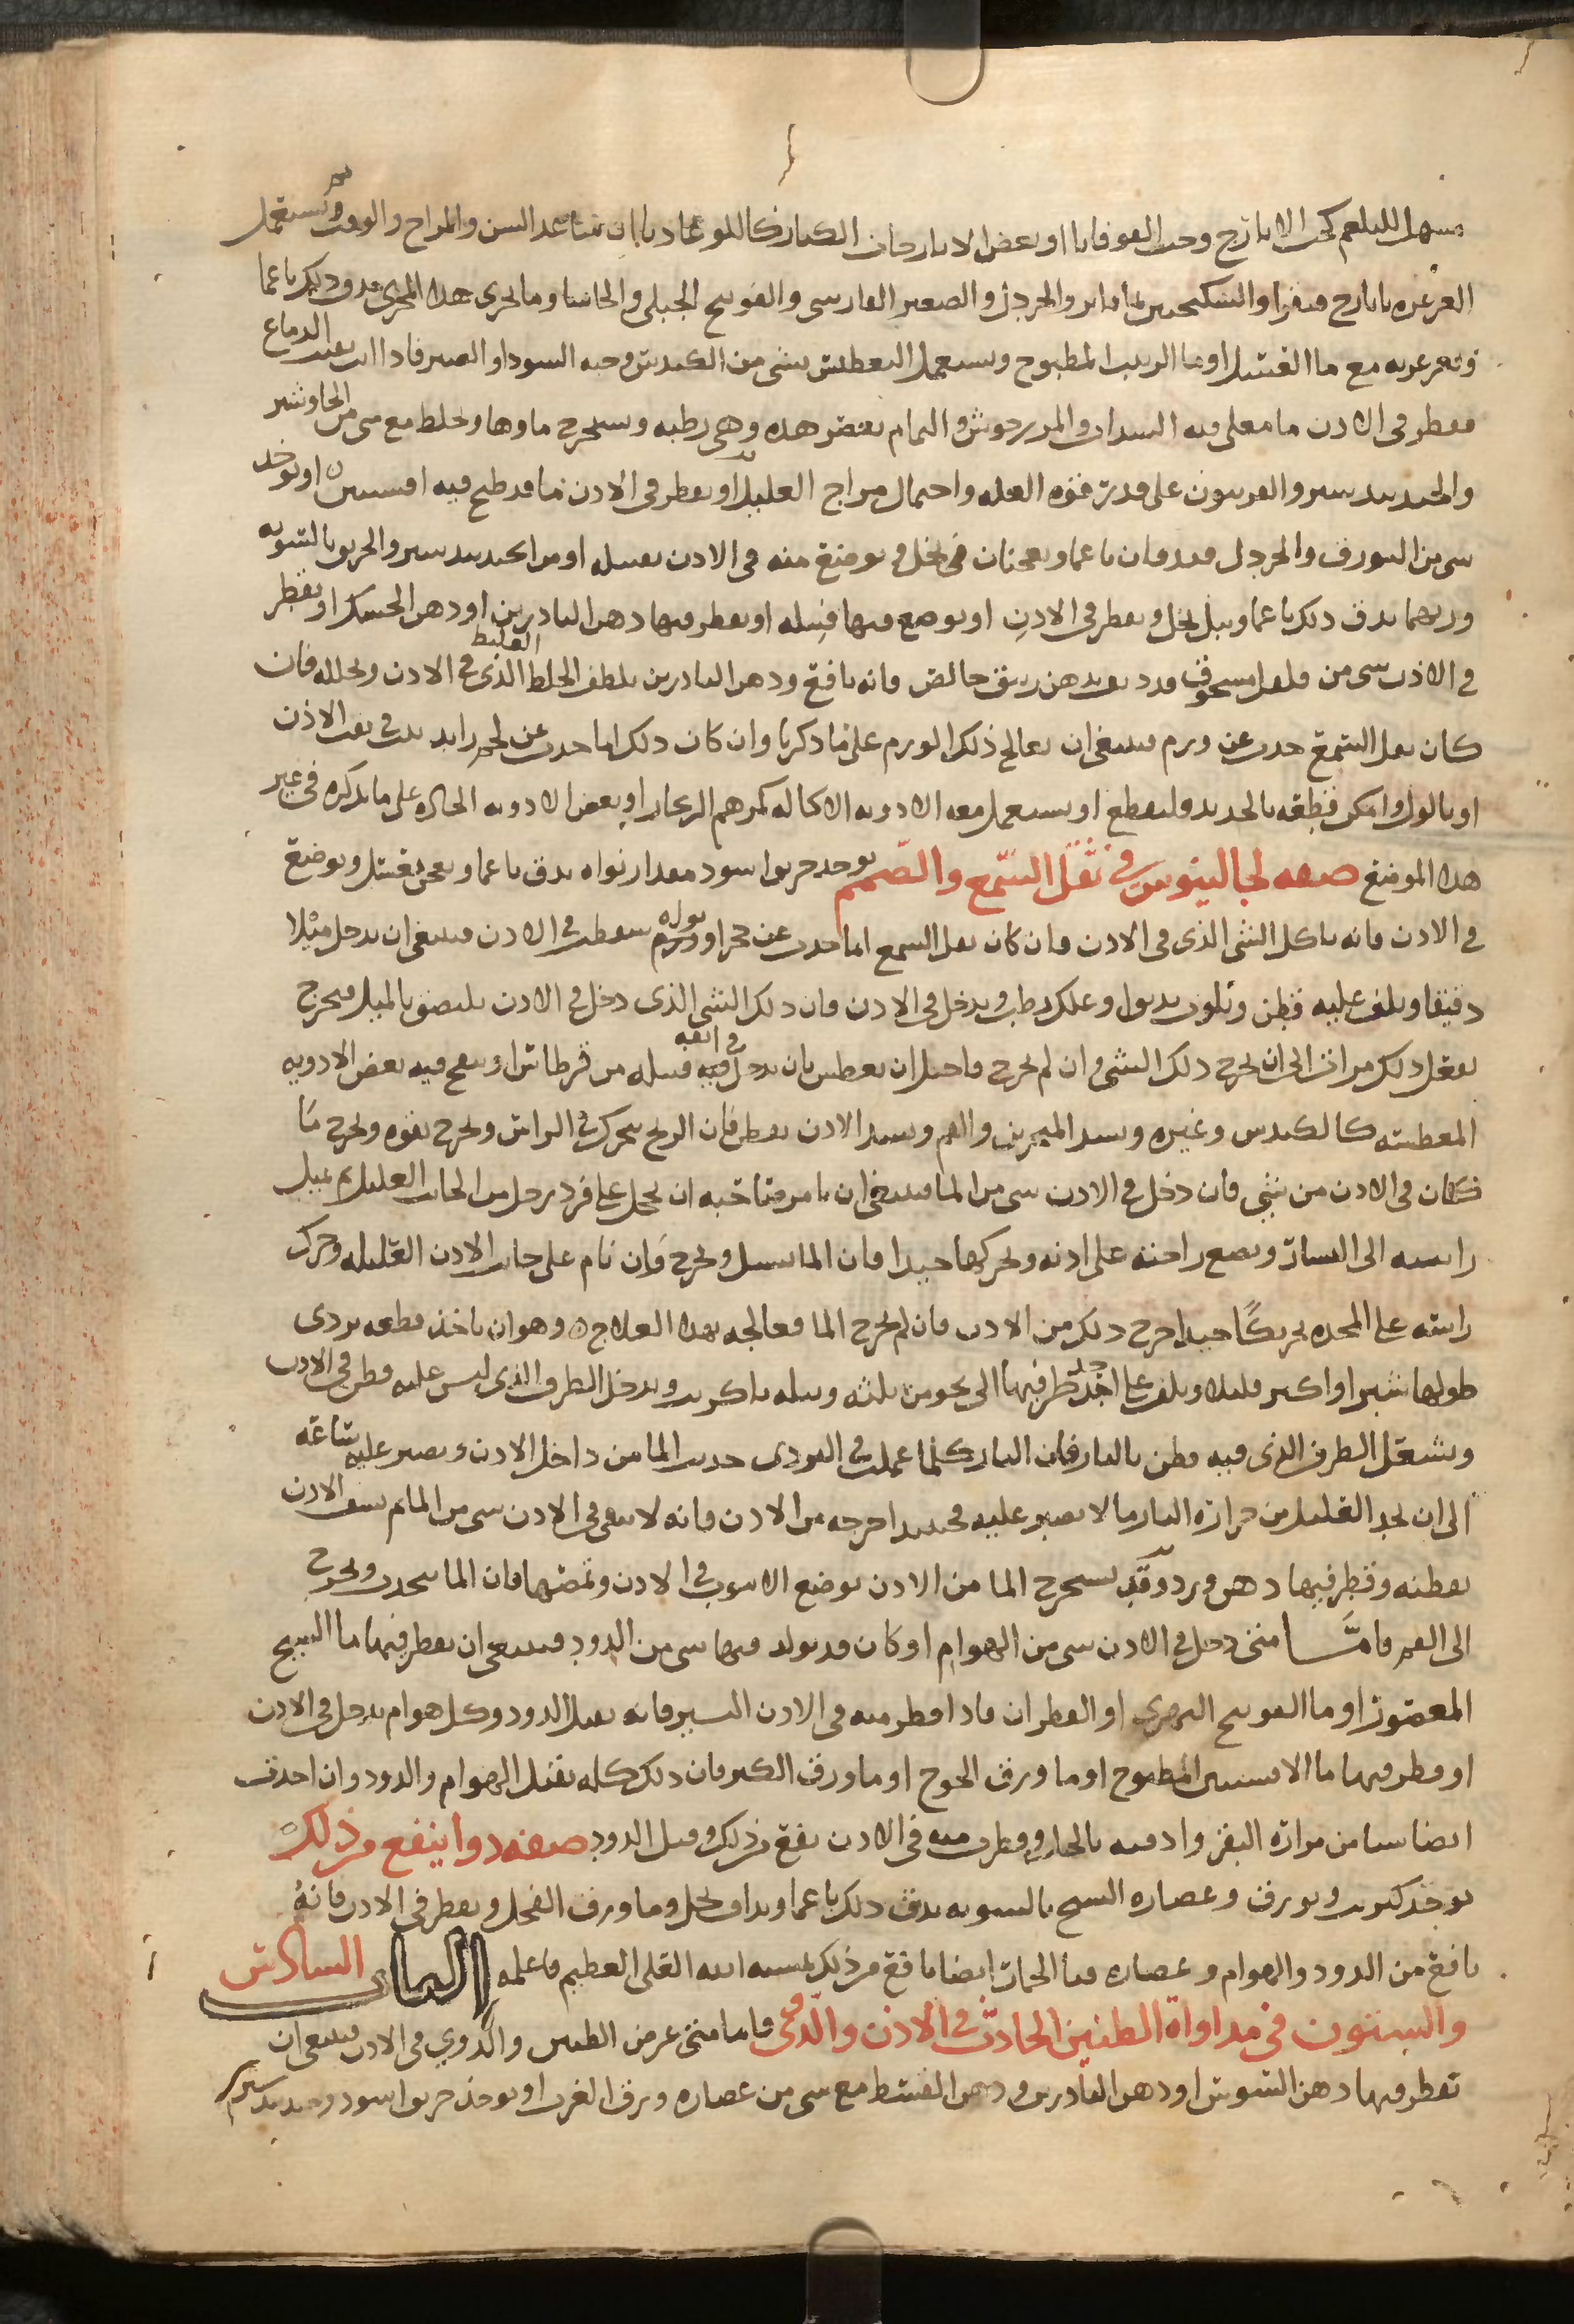 مسهل للبلغم كحب الايارج وحب القوقايا او بعض الايارجات الكبار كاللوغاديا ان ساعد السن والمزاج والوقت ويستعمل
الغرغره بايارج فيقرا والسكنجبين والخردل والصعتر الفارسي والفوتنج الجبلي والحاشا وما يجري هذا المجرى يدق ذلك ناعما
ويغرغر به مع ما العسل او ما الزبيب المطبوخ ويستعمل التعطيس بشي من الكندس وحبه السودا والصبر فاذا انت نقيت الدماغ
فقطر في الاذن ما مغلى فيه السداب والمرزنجوش والنمام بعض هذه وهي رطبه ويستخرج ماوها ويخلط مع شي من الجاوشير
والجندبيدستر والفربيون على قدر قوه العله واحتمال مزاج العليل او يقطر في الاذن ما قد طبخ فيه افسنتين او يوخذ
شي من البورق والخردل فيدقان ناعما ويعجنان في بخل ويوضع منه في الاذن بفتيله او من الجندبيدستر والخربق بالسويه
وربما يدق ذلك ناعما ويبل بخل ويقطر في الاذن او يوضع فيها فتيله او يقطر فيها دهن الناردين او دهن الحسك او يقطر
في الاذن شي من فلفل مسحوق قد ديف بدهن زنبق خالص فانه نافع ودهن الناردين يلطف الخلط الغليظ الذي في الاذن ويحلله فان
كان ثقل السمع حدث عن ورم فينبغي ان يعالج ذلك الورم على ما ذكرنا وان كان ذلك انما حدث عن لحم زايد نبت في ثقب الاذن
او ثالول وامكن قطعه بالحديد فليقطع او يستعمل معه الادويه الاكاله كمرهم الزنجار او بعض الادويه الحاده على ما نذكره في غير
هذا الموضع صفه لجالينوس في ثقل السمع والصمم يوخذ خربق اسود مقدار نواه يدق ناعما ويعجن بعسل ويوضع
في الاذن فانه ياكل الشي الذي في الاذن فان كان ثقل السمع انما حدث عن حجر او نواه سقطت في الاذن فينبغي ان يدخل ميلا
دقيقا ويلف عليه قطن ويلوث بدبق وعلك رطب ويدخل في الاذن فان ذلك الشي الذي دخل في الاذن يلتصق بالميل فيخرج
يفعل ذلك مرات الى ان يخرج ذلك الشي وان لم يخرج فاحتل ان يعطس بان يدخل في انفه فتيله من قرطاس او ينفخ فيه بعض الادويه
المعطسه كالكندس وغيره ويسد المنخرين والفم ويسد الاذن بقطن فان الريح يتحرك في الراس ويخرج بقوه ويخرج ما
كان في الاذن من شي فان دخل في الاذن شي من الما فينبغي ان يامر صاحبه ان يحجل على فرد رجل من الجانب العليل ثم يميل
راسه الى اليسار ويضع راحته على اذنه ويحركها جيدا فان الما يسيل ويخرج فان نام على جانب الاذن العليله وحرك
راسه على المخده تحريكا جيدا خرج ذلك من الاذن فان لم يخرج الما فعالجه بهذا العلاج وهو ان ياخذ قطعه بردى
طولها شبر او اكبر قليلا ويلف على احد طرفيها الى نحو من ثلثه ويبله ويدخل الطرف الذي ليس عليه قطن في الاذن
ويشعل الطرف الذي فيه قطن بالنار فان النار كلما عملت في البردى جذبت الما من داخل الاذن ويصبر عليه ساعه
الى ان يجد العليل من حراره النار ما لا يصبر عليه فحينيذ اخرجه من الاذن فانه لا يبقى في الاذن شي من الما ثم ينشف الاذن
بقطنه وقطر فيها دهن ورد وقد يستخرج الما من الاذن بوضع الانبوب في الاذن ومصها فان الما ينجذب ويخرج
الى الفم فاما متى دخل في الاذن شي من الهوام او كان قد تولد فيها شي من الدود فينبغي ان يقطر فيها ما الشيح
المعصور او ما الفوتنج النهري او القطران فاذا قطر منه في الاذن اليسير فانه يقتل الدود وكل هوام يدخل في الاذن
او قطر فيها ما الافسنتين المطبوخ او ما ورق الخوخ او ما ورق الكبر فان ذلك كله يقتل الهوام والدود وان اخذت
ايضا شيا من مراره البقر وادفته بالخل وقطرت منه في الاذن نفع من ذلك وقتل الدود صفه دوا ينفع من ذلك
يوخذ كبريت وبورق وعصاره الشيح بالسويه يدق ذلك ناعما ويداف بخل وما ورق الفجل ويقطر في الاذن فانه
نافع من الدود والهوام وعصاره قثا الحمار ايضا نافع من ذلك بمشيه الله العلي العظيم فاعلمه الباب السادس
والستون في مداواة الطنين الحادث في الاذن والدوي فاما متى عرض الطنين والدوي في الاذن فينبغي ان
تقطر فيها دهن السوسن او دهن الناردين ودهن القسط مع شي من عصاره ورق الغرب او يوخذ خربق اسود وجندبيدستر